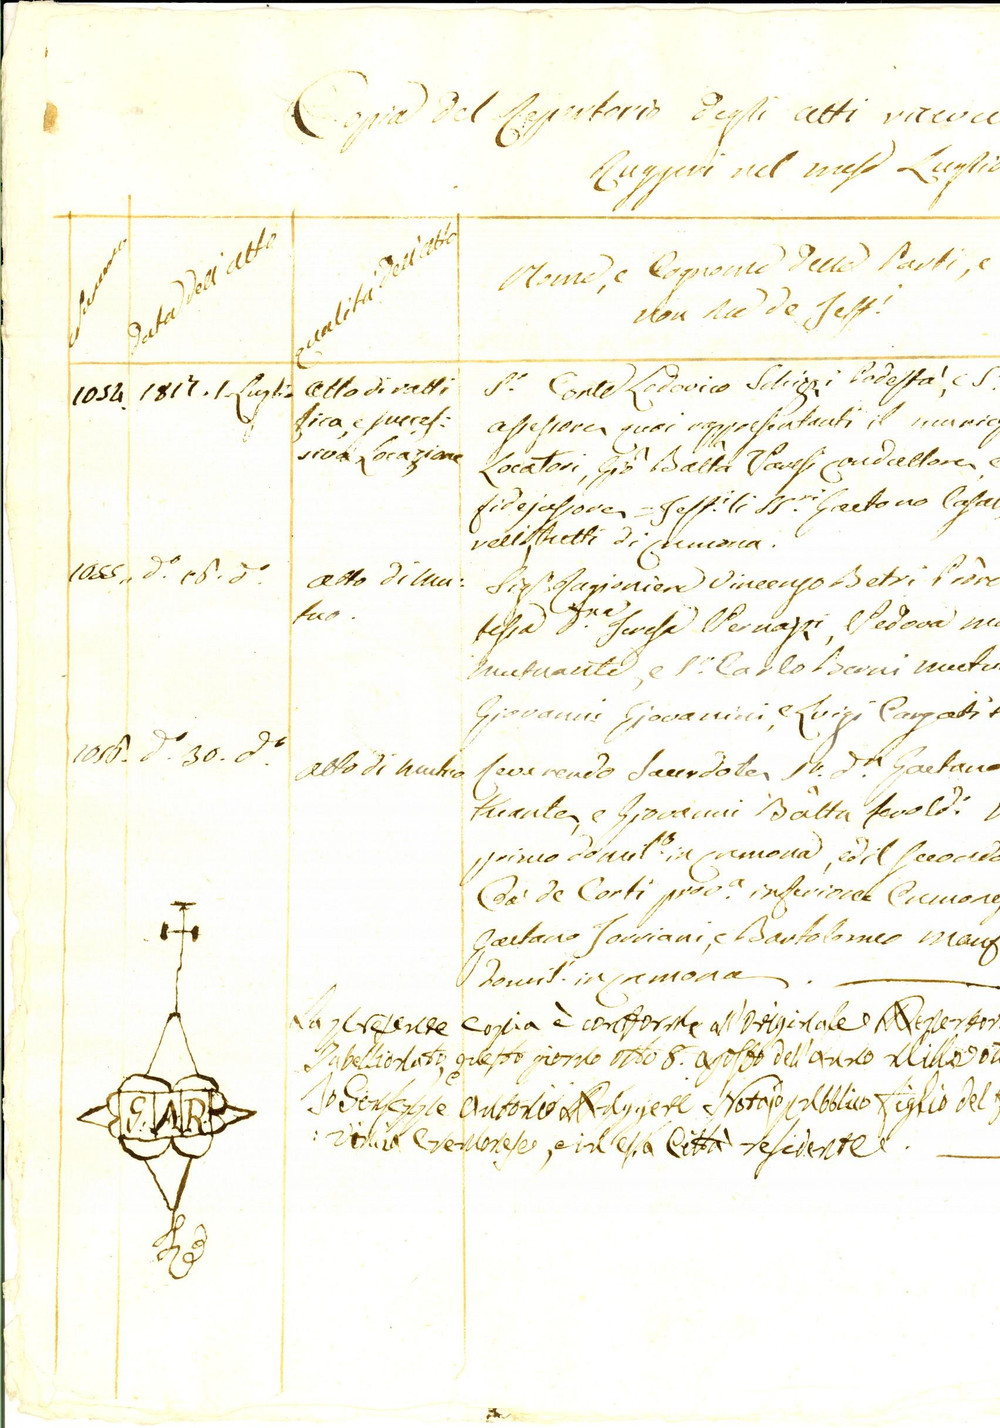 Copia del Repertorio degli atti
Ruggeri nel mese Luglio
Numero
Data dell'atto
qualità dell'atto
Nome, e Cognome delle Parti, e
non che de Test.i
1054. 1817. 1. Luglio
Atto di ratti
fica, e succes-
siva Locazione
S.r Conte Lodovico Schizzi Podestà, e S.
assessore quai rappresentanti il munici
Locatori, Gio Batta Varesi conduttore, e
fidejussore = Test.i li SS.ri Gaetano
tutti di Cremona.
1055. d.o 18. d.o
atto di Mu-
tuo.
Sig.r Ragioniere Vincenzo Betri
Teresa Vernazzi, Vedova
mutuante, e S.r Carlo Berni mutu
Giovanni Giovanini, e Luigi
1056. d.o 30. d.o
atto di mutuo
Reverendo Sacerdote, Sr. Dn Gaetano
tuante, e Giovanni Batta
primo domil.o in Cremona, ed il secondo
Ca' de Corti prov.a inferiore Cremones
Gaetano Torriani, e Bartolomeo Manf
domil.i in Cremona.
La presente Copia è conforme all'originale Repertor
questo giorno otto 8. agosto dell'anno Mille ott
Io Giuseppe Antonio Ruggeri Notajo pubblico figlio del
Cremonese, e in essa Città residente.
G.A.R.